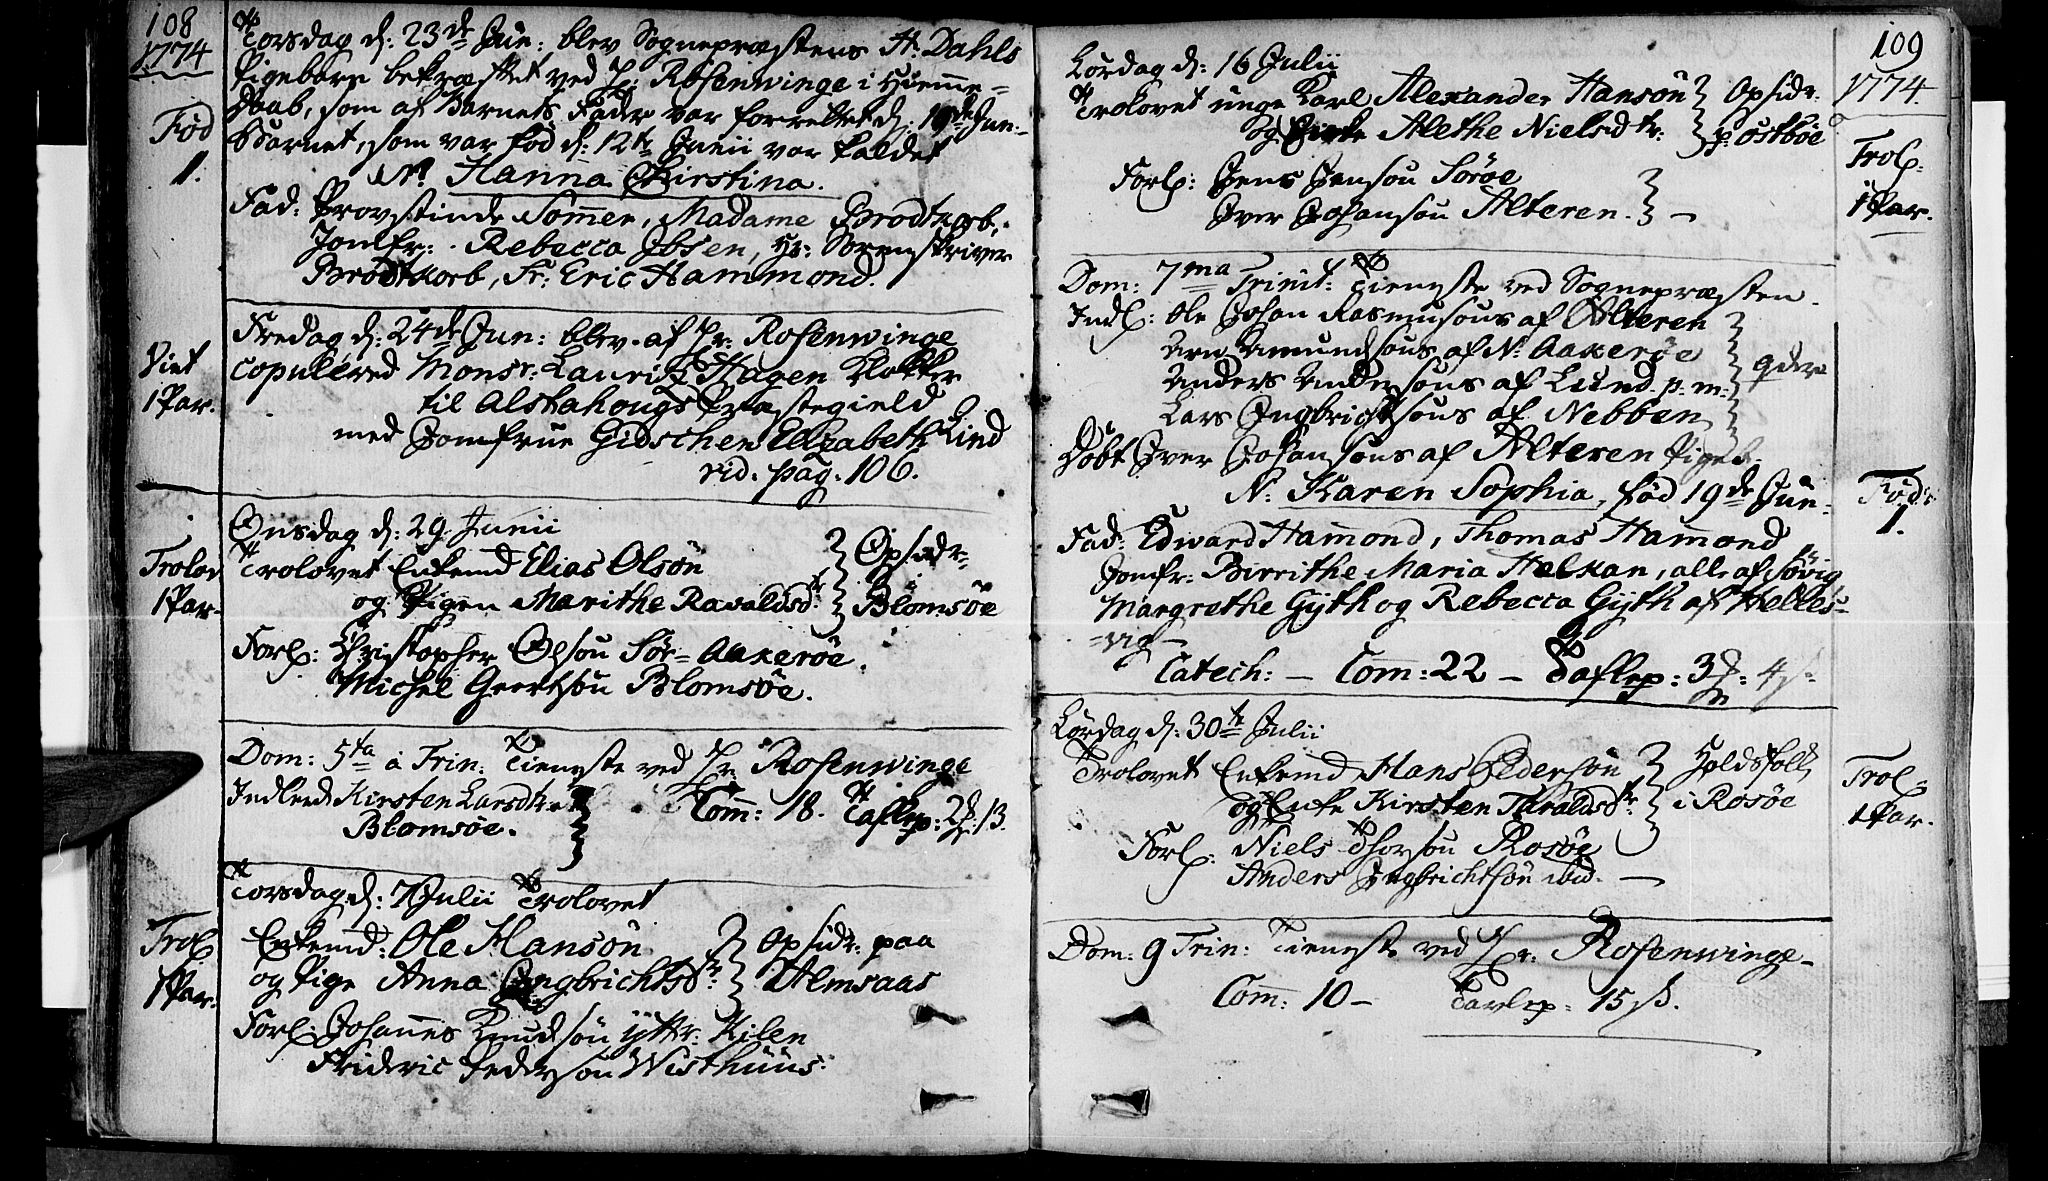 108
1774
Torsdag d: 23de Jun: blev Sognepræstens Hr. Dahls
Pigebarn bekræftet ved Hr: Rosenwinge i Hiemme=
Daab, som af Barnets Fader var forrettet d: 19de Jun:
Barnet, som var fød d: 12te Junii var kaldet
N: Hanna Kirstina.
Fad: Provstinde Sommer, Madame Brodtkorb,
Jomfr: Rebecca Ibsen, Hr: Sorenskriver
Brodtkorb, Sr: Eric Hammond.
Fød
1.
Fredag d: 24de Jun: blev af Hr: Rosenwinge
copulered Monsr: Lauritz Hagen Klokker
til Alstahougs Præstegield
med Jomfrue Gidschen Elizabeth Lind
vid. pag. 106.
Viet
1 Par.
Onsdag d: 29 Junii
Trolovet Enkemd Elias Olsøn
og Pigen Marithe Ravaldsdtr
Opsidr.
i
Blomsøe
Forl: Christopher Olsøn Sør=Aakerøe.
Michel Geertsøn Blomsøe.
Trolov
1 Par.
Dom: 5ta a Trin: Tieneste ved Hr. Rosenwinge
Indledt Kirsten Larsdtr
Blomsøe.
Com: 18. Taflep: 2 13.
Torsdag d: 7 Julii Trolovet
Enkemd: Ole Hansøn
og Pige Anna Ingbrichtsdtr:
Opsidr: paa
Almsaas
Forl: Johannes Knudsøn yttr: Kilen
Frideric Pedersøn Wisthuus.
Trol.
1 Par.
109
1774.
Lørdag d: 16 Julii
Trolovet unge Karl Alexander Hansøn
og Alethe Nielsdtr:
Opsidr.
p: Østbøe
Forl: Jens Jensøn Sørøe
Iver Johansøn Alteren.
Trol:
1 Par.
Dom: 7ma Trinit: Tieneste ved Sognepræsten.
Indl: Ole Johan Rasmusøns af Alteren
Arn Amundsøns af N: Aakerøe
Anders Andersøns af Lund p. m:
Lars Ingbrichtsøns af Nebben
qder
Døbt Iver Johansøns af Alteren Pigeb.
N: Karen Sophia, fød 19de Jun:
Fad: Edward Hammond, Thomas Hammond
Jomfr: Birrithe Maria Helkan, alle af Søvig
Margrethe Gyth og Rebecca Gyth af Helles=
=vig
Catech: — Com: 22 — Taflep: 3 : 4 s.
Fød:
1.
Lørdag d: 30te Julii
Trolovet Enkemd Hans Pedersøn
og Enke Kirsten Taraldsdtr:
Holdsfolk
i Rosøe
Forl: Niels Thorsøn Rosøe
Anders Ingbrichtsøn ibid. —
Trol.
1 Par.
Dom: 9 Trin: Tieneste ved Hr. Rosenwinge
Com: 10 — Tavlep: 15 s.